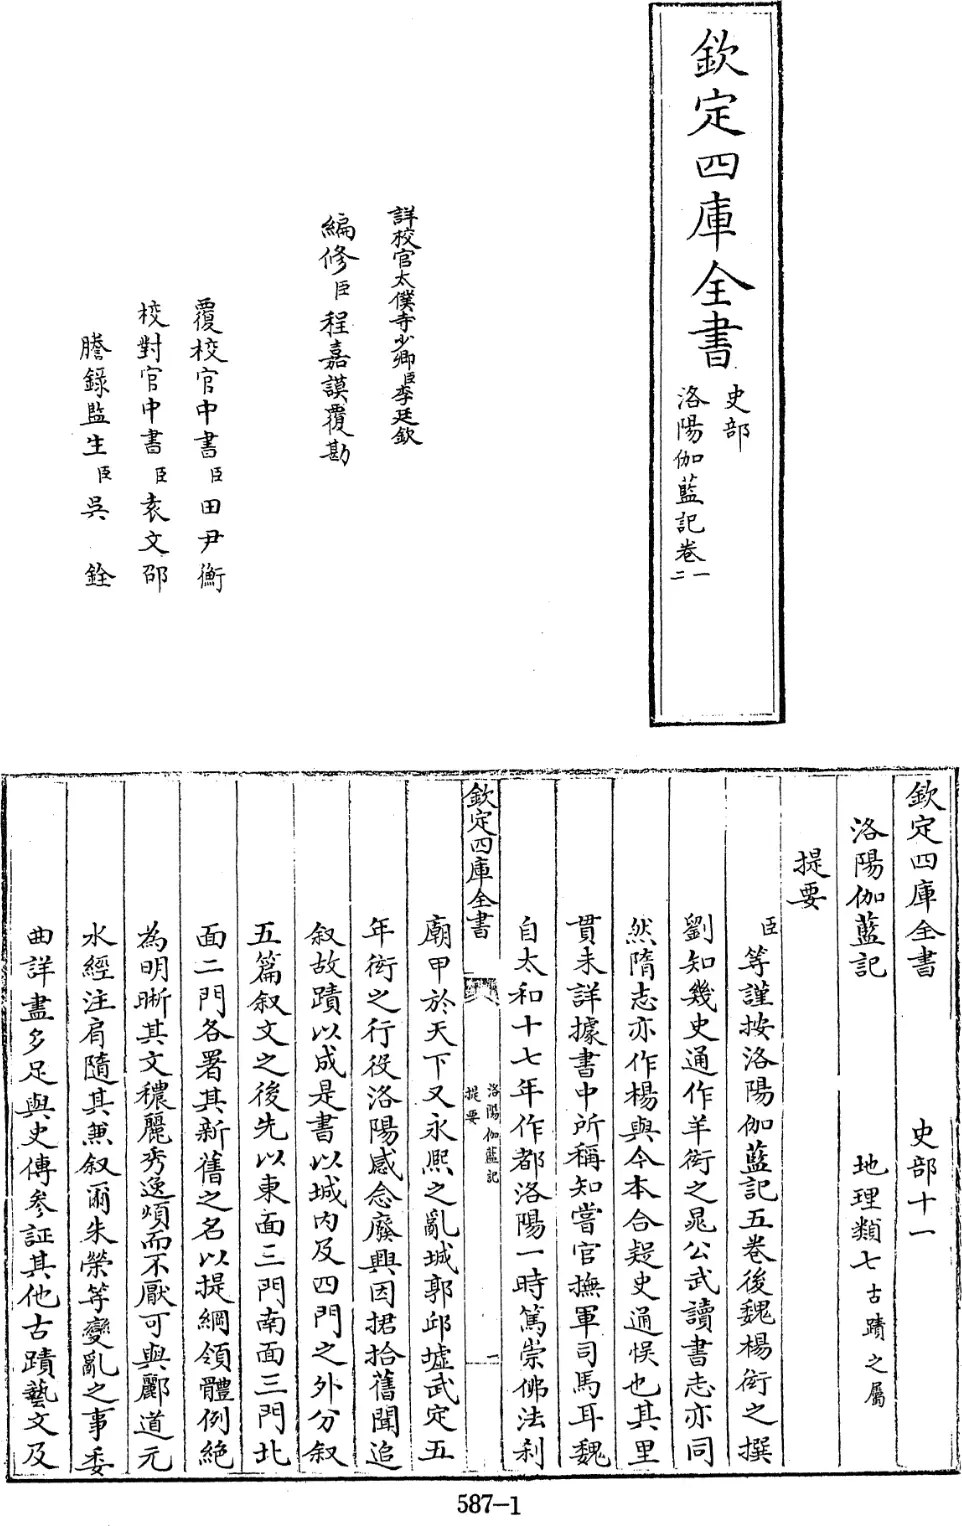 欽定四庫全書
史部
洛陽伽藍記卷一
二
詳校官太僕寺少卿臣李廷欽
編修臣程嘉謨覆勘
覆校官中書臣田尹衡
校對官中書臣袁文邵
謄錄監生臣吳銓
欽定四庫全書 史部十一
洛陽伽藍記 地理類七古蹟之屬
提要
臣等謹按洛陽伽藍記五卷後魏楊衒之撰
劉知幾史通作羊衒之晁公武讀書志亦同
然隋志亦作楊與今本合疑史通悞也其里
貫未詳據書中所稱知嘗官撫軍司馬耳魏
自太和十七年作都洛陽一時篤崇佛法刹
欽定四庫全書
洛陽伽藍記
提要
一
廟甲於天下又永熙之亂城郭邱墟武定五
年衒之行役洛陽感念廢興因捃拾舊聞追
叙故蹟以成是書以城内及四門之外分叙
五篇叙文之後先以東面三門南面三門北
面二門各署其新舊之名以提綱領體例絶
為明晰其文穠麗秀逸煩而不厭可與酈道元
水經注肩隨其兼叙爾朱榮等變亂之事委
曲詳盡多足與史傳參証其他古蹟藝文及
587-1